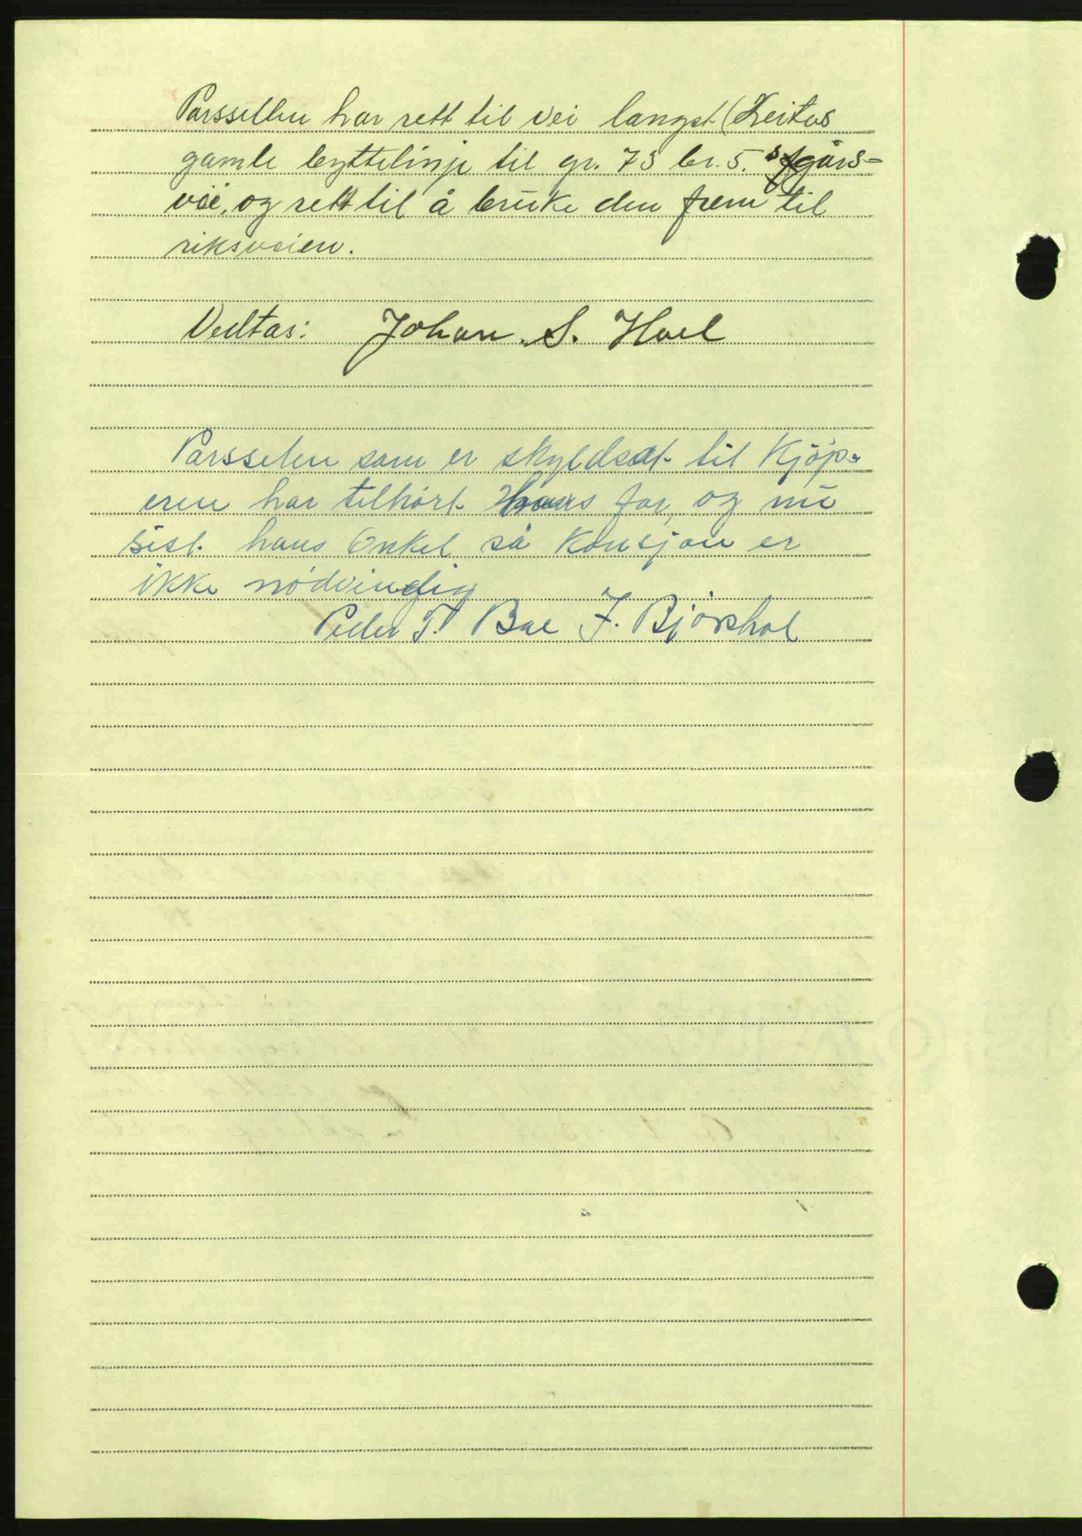 Parssellen har rett til vei langst (Leitus
gamle byttelinje til gr. 73 br. 5. s gårs-
vei, og rett til å bruke den frem til
riksveien.
Vedtas: Johan. S. Hoel
Parsselen som er skyldsat til Kjøp-
eren har tilhört Hans far, og nu
sist hans Onkel så Konsjon er
ikke nödvindig
Peder T. Bae J. Bjørshol